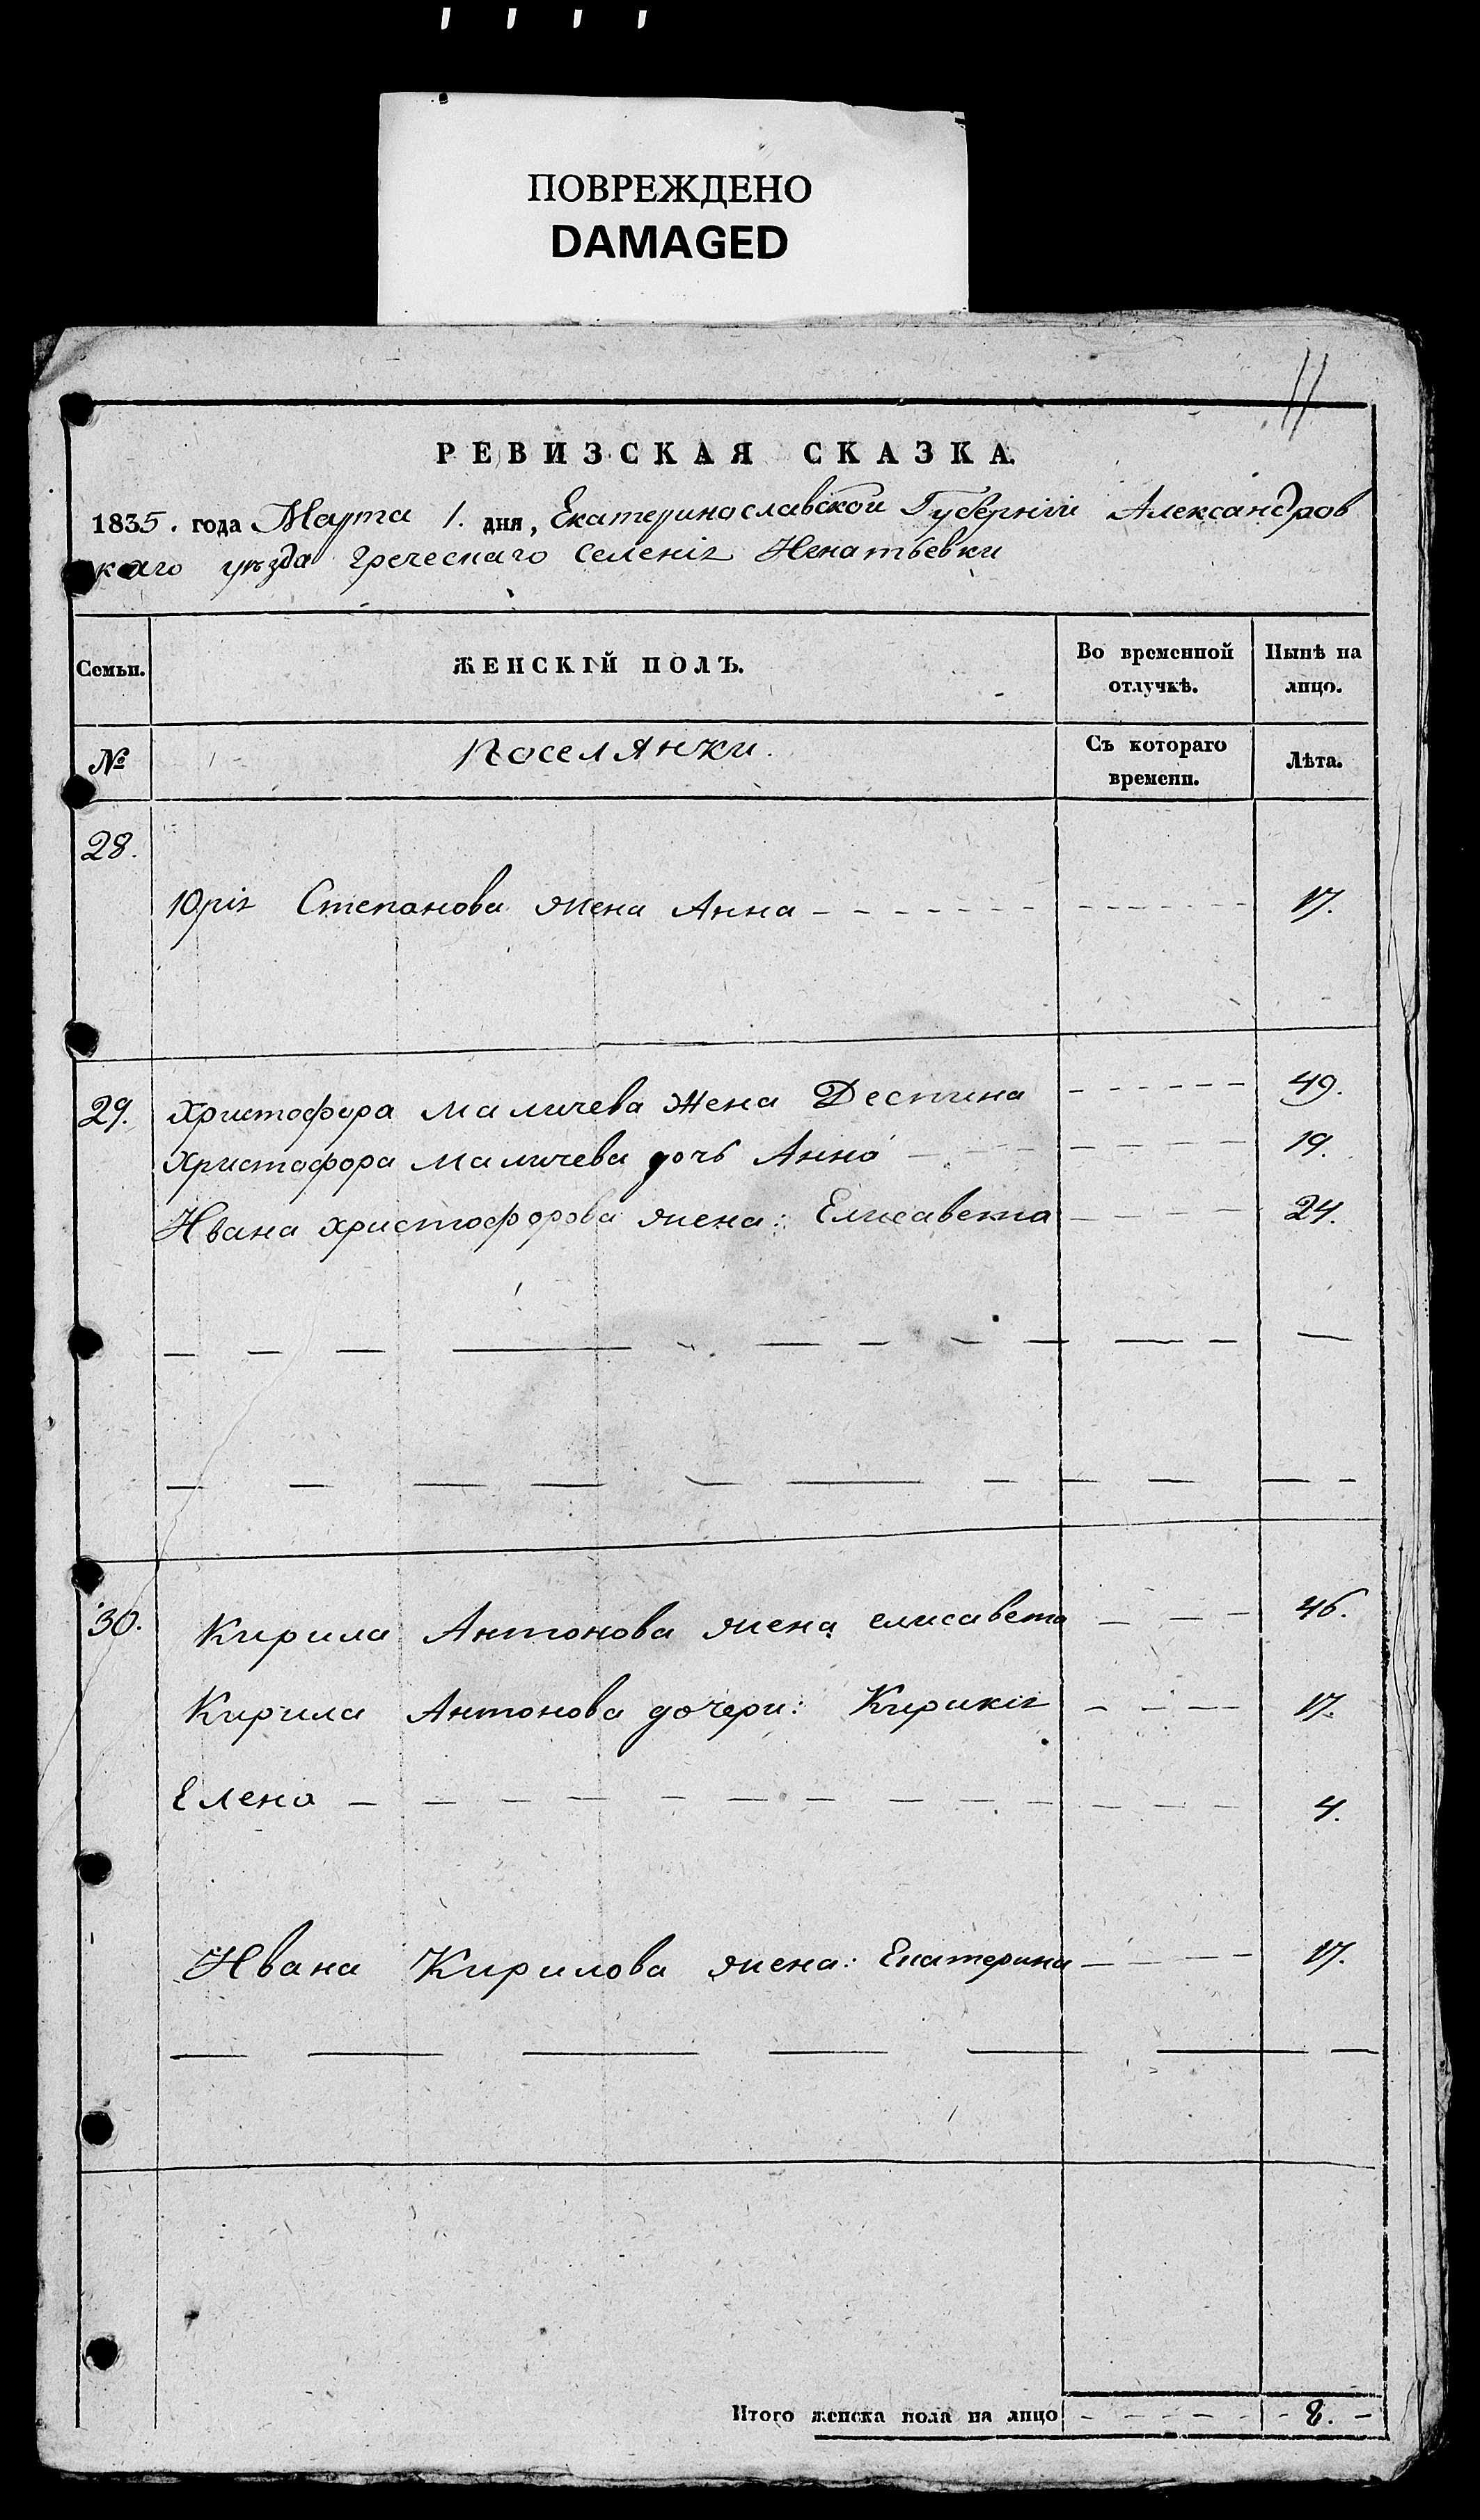 ПОВРЕЖДЕНО
DAMAGED
11
РЕВИЗСКАЯ СКАЗКА.
1835. года Марта 1. дня, Екатеринославской Губерніи Александров
каго уѣзда греческаго Селенія Игнатьевки
Семьи. ЖЕНСКІЙ ПОЛЪ. Во временной отлучкѣ. Нынѣ на лицо.
№ Поселянки. Съ котораго времени. Лѣта.
28.
Юрія Степанова жена Анна 17.
29. Христофора Маличева жена Деспина 49.
Христофора Маличева дочь Анна 19.
Ивана христофорова жена: Елисавета 24.
30. Кирила Антонова жена елисавета 46.
Кирила Антонова дочери: Кирикія 17.
Елена 4.
Ивана Кирилова жена: Екатерина 17.
Итого женска пола на лицо 8.